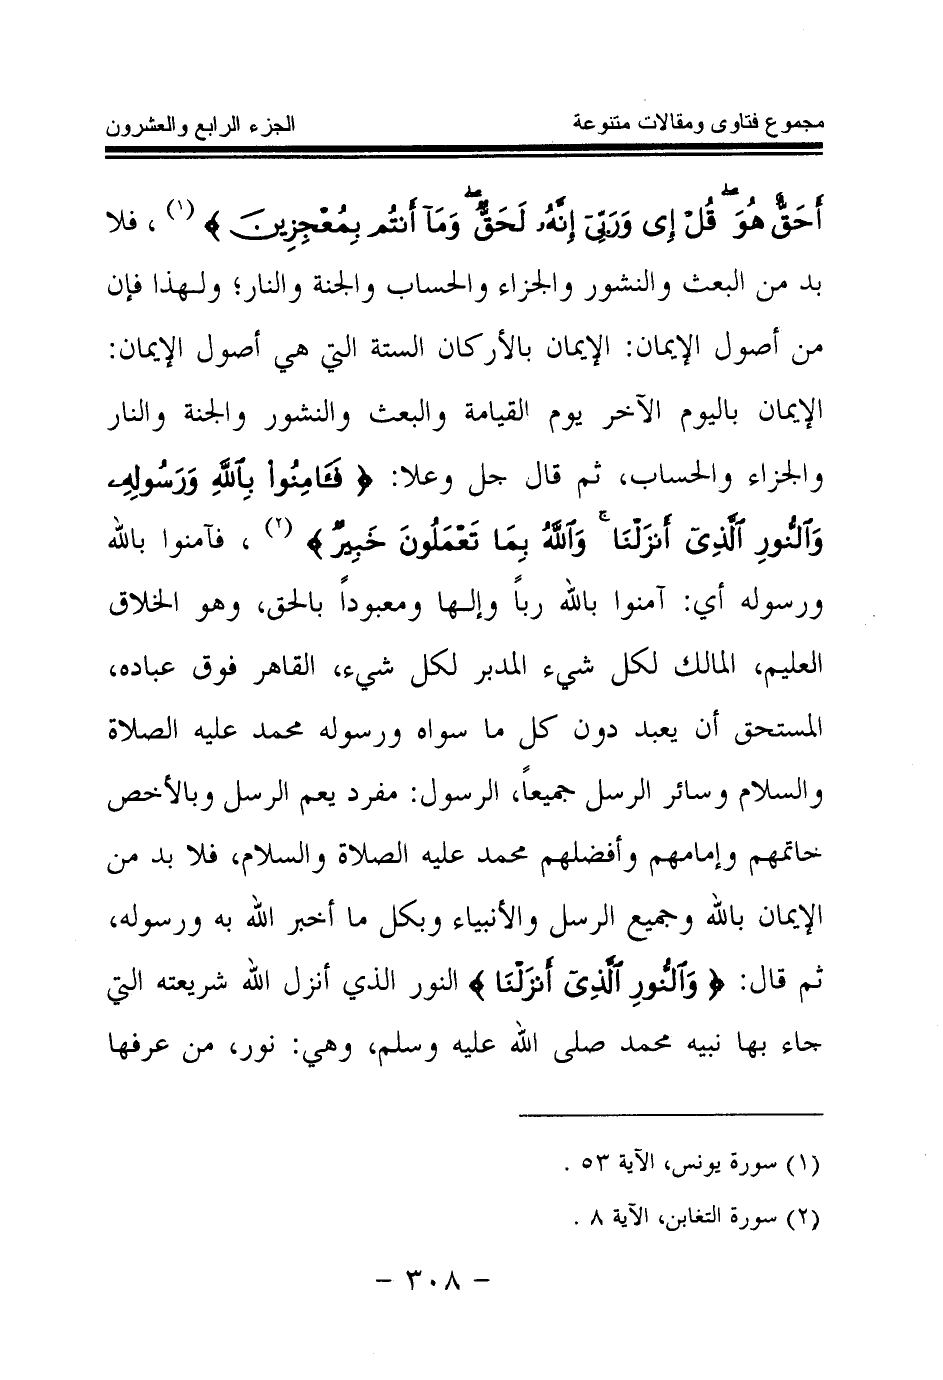 مجموع فتاوى ومقالات متنوعة الجزء الرابع والعشرون
أَحَقٌّ هُوَ ۖ قُلْ إِى وَرَبِّىٓ إِنَّهُۥ لَحَقٌّ ۖ وَمَآ أَنتُم بِمُعْجِزِينَ ﴾ (١) ، فلا
بد من البعث والنشور والجزاء والحساب والجنة والنار؛ ولـهذا فإن
من أصول الإيمان: الإيمان بالأركان الستة التي هي أصول الإيمان:
الإيمان باليوم الآخر يوم القيامة والبعث والنشور والجنة والنار
والجزاء والحساب، ثم قال جل وعلا: ﴿ فَـَٔامِنُوا۟ بِٱللَّهِ وَرَسُولِهِۦ
وَٱلنُّورِ ٱلَّذِىٓ أَنزَلْنَا ۚ وَٱللَّهُ بِمَا تَعْمَلُونَ خَبِيرٌ ﴾ (٢) ، فآمنوا بالله
ورسوله أي: آمنوا بالله رباً وإلـها ومعبوداً بالحق، وهو الخلاق
العليم، المالك لكل شيء المدبر لكل شيء، القاهر فوق عباده،
المستحق أن يعبد دون كل ما سواه ورسوله محمد عليه الصلاة
والسلام وسائر الرسل جميعاً، الرسول: مفرد يعم الرسل وبالأخص
خاتمهم وإمامهم وأفضلهم محمد عليه الصلاة والسلام، فلا بد من
الإيمان بالله وجميع الرسل والأنبياء وبكل ما أخبر الله به ورسوله،
ثم قال: ﴿ وَٱلنُّورِ ٱلَّذِىٓ أَنزَلْنَا ﴾ النور الذي أنزل الله شريعته التي
جاء بها نبيه محمد صلى الله عليه وسلم، وهي: نور، من عرفها
(١) سورة يونس، الآية ٥٣ .
(٢) سورة التغابن، الآية ٨ .
– ٣٠٨ –